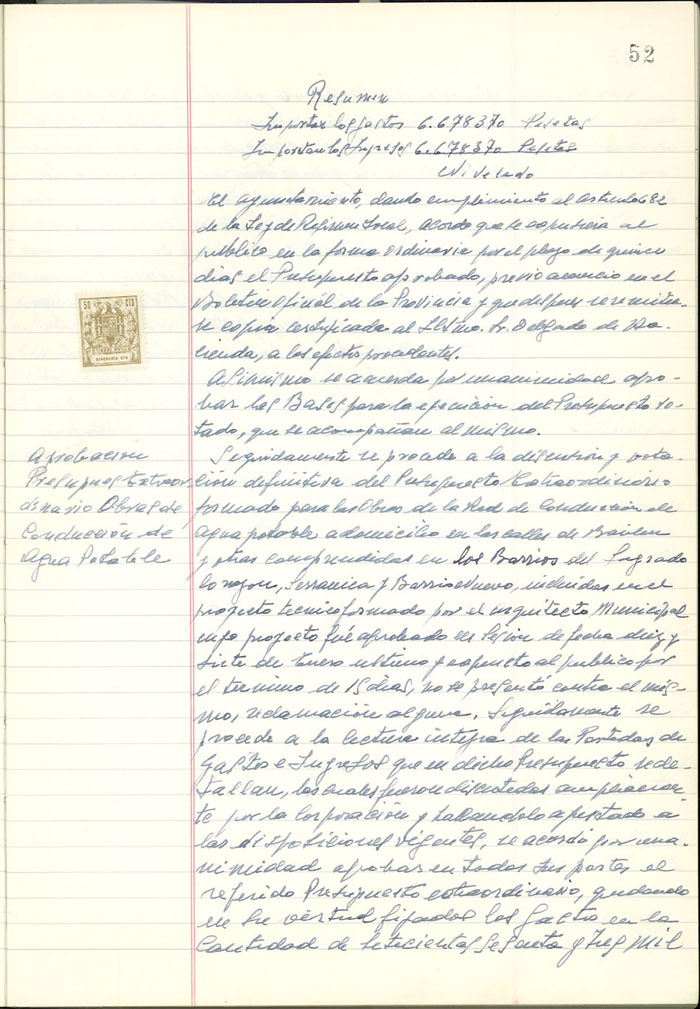 52
Resumen
Importan los gastos 6.678370 Pesetas
Importan los Ingresos 6.678370 Pesetas
Nivelado
El ayuntamiento, dando cumplimiento al articulo 682
de la Ley de Regimen Local, acordo que se expusiera al
publico en la forma ordinaria por el plazo de quince
dias el Presupuesto aprobado, previo anuncio en el
Boletin Oficial de la Provincia y que despues se remitie-
se copia certificada al Iltmo. Sr. Delegado de Ha-
cienda, a los efectos procedentes.
Asimismo se acuerda por unanimidad apro-
bar las Bases para la ejecucion del Presupuesto vo-
tado, que se acompañan al mismo.
50 CTS
Aprobacion
Presupuesto Extraor
dinario Obras de
Conducción de
Agua Potable
Seguidamente se procede a la discusion y vota-
ción definitiva del Presupuesto Extraordinario
formado para las Obras de la Red de Conducción de
agua potable a domicilio en las calles de Bailen
y otras comprendidas en los Barrios del Sagrado
Corazon, Serranica y Barrio Nuevo, incluidas en el
proyecto tecnico formado por el arquitecto Municipal
cuyo proyecto fué aprobado en Sesión de fecha diez y
siete de Enero ultimo y expuesto al publico por
el termino de 15 dias, no se presentó contra el mis-
mo, reclamación alguna. Seguidamente se
procede a la lectura integra de las Partidas de
Gastos e Ingresos que en dicho Presupuesto se de-
tallan, las cuales fueron discutidas ampliamen-
te por la Corporación y hallandolo ajustado a
las disposiciones vigentes, se acordó por una-
nimidad aprobar en todas sus partes el
referido Presupuesto extraordinario, quedando
en su virtud fijados los Gastos en la
Cantidad de Setecientas sesenta y tres mil